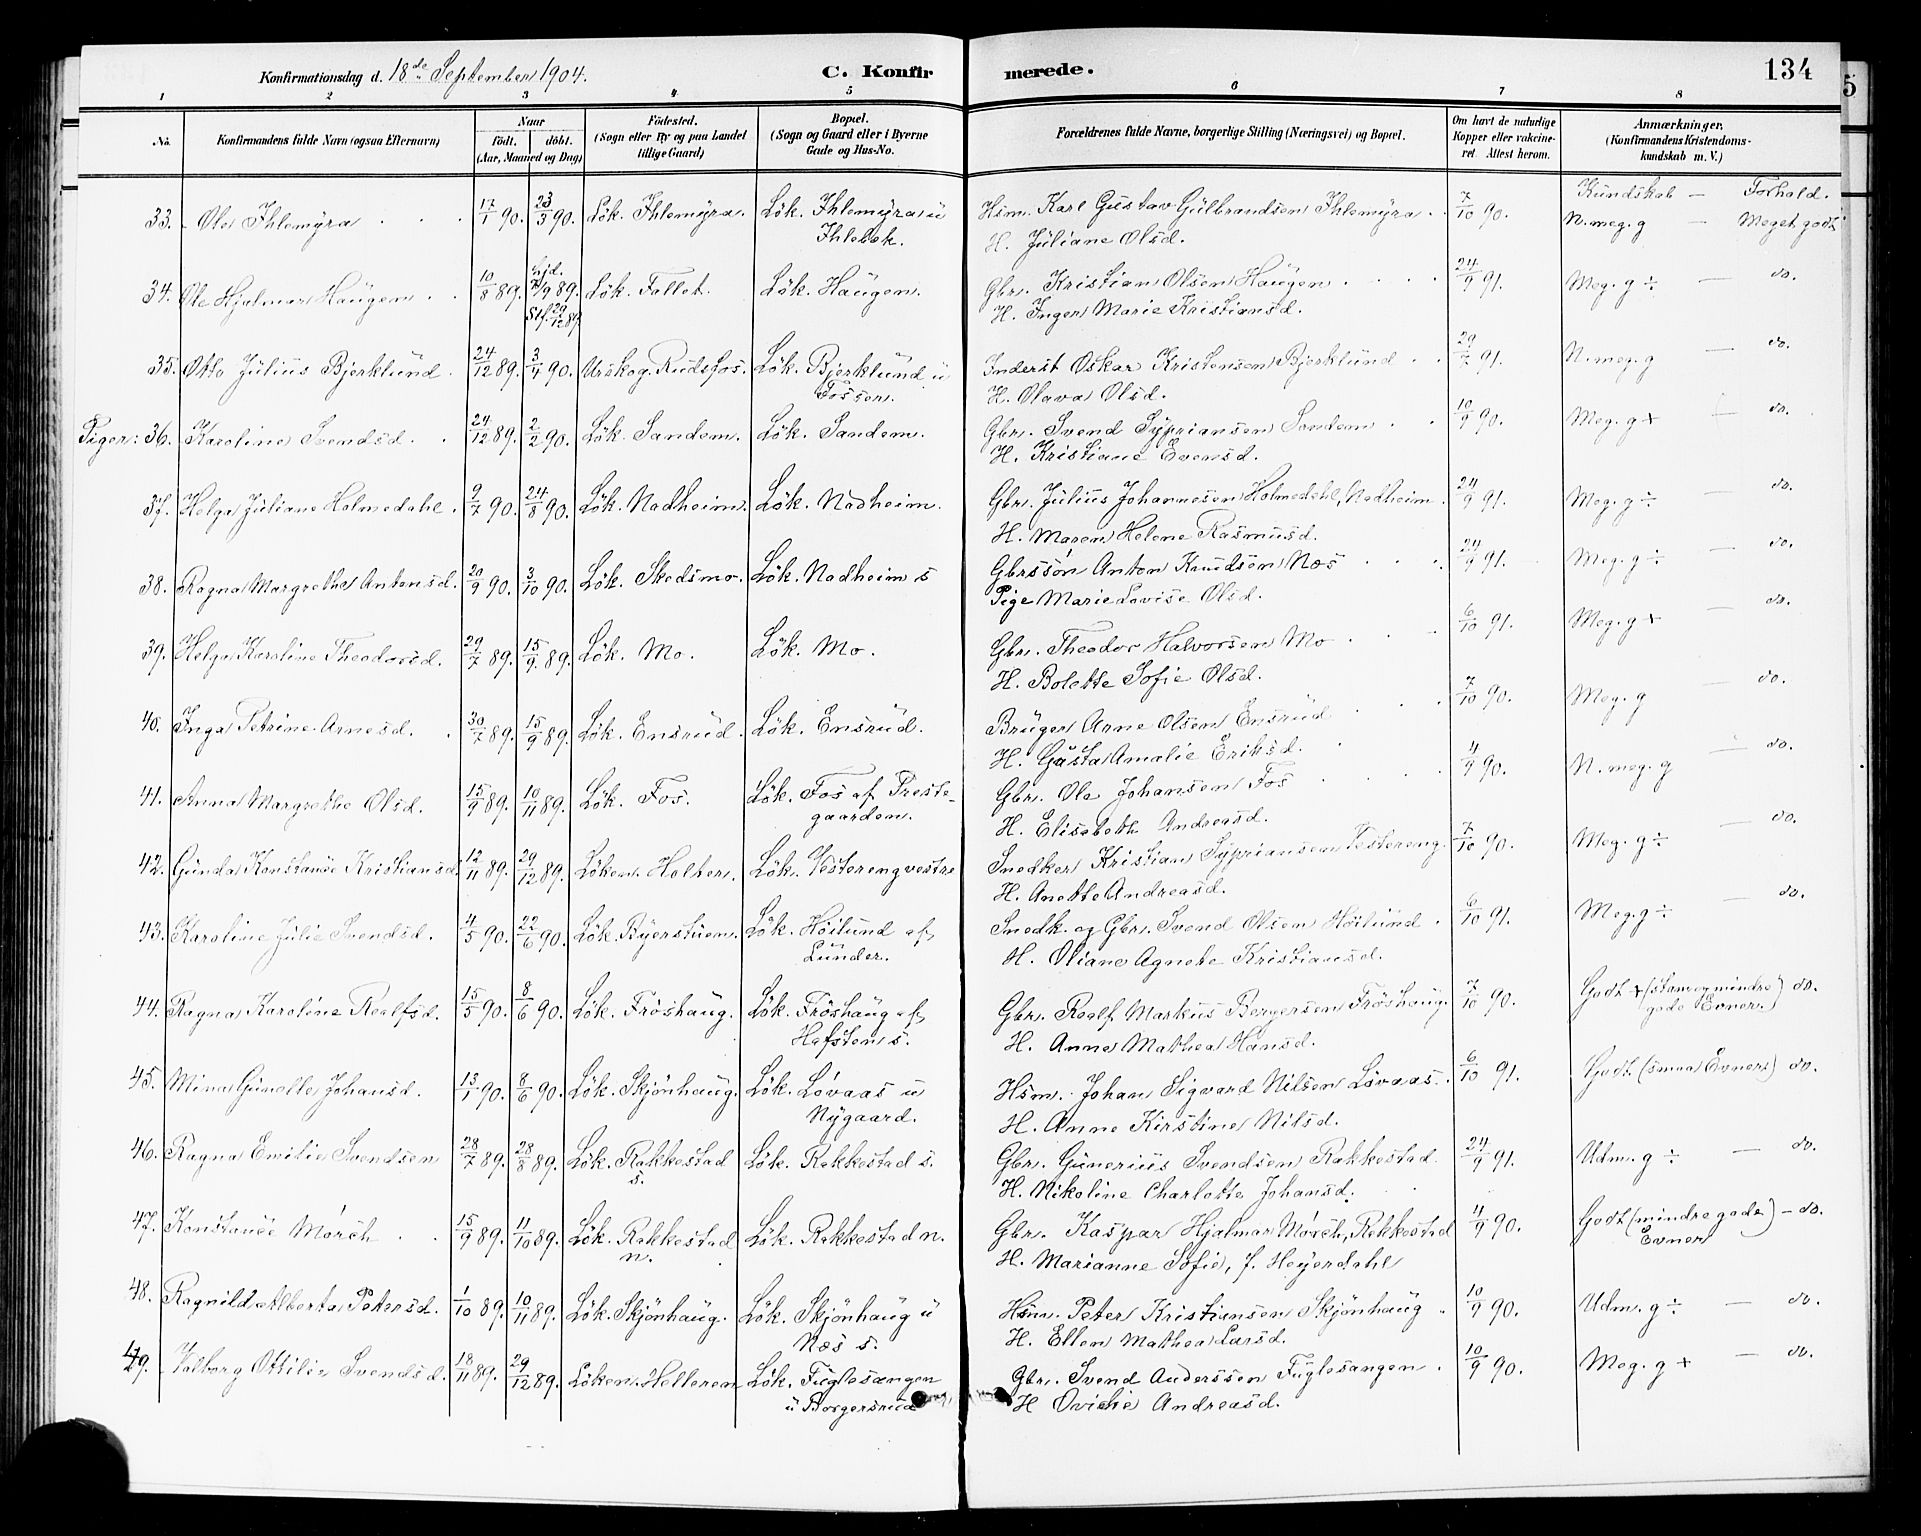 Konfirmationsdag d. 18de September 1904.
C. Konfirmerede.
134
5
1 2 3 4 5 6 7 8
No.
Konfirmandens fulde Navn (ogsaa Efternavn)
Naar
födt. döbt.
(Aar, Maaned og Dag)
Födested.
(Sogn eller By og paa Landet
tillige Gaard)
Bopæl.
(Sogn og Gaard eller i Byerne
Gade og Hus-No.
Forældrenes fulde Navne, borgerlige Stilling (Næringsvei) og Bopæl.
Om havt de naturlige
Kopper eller vakcine-
ret. Attest herom.
Anmærkninger.
(Konfirmandens Kristendoms-
kundskab m. V.)
Kundskab — Forhold.
33. Ole Ihlemyra 17/1 90. 23/3 90. Lök. Ihlemyra. Lök. Ihlemyra u Hsm. Karl Gustav Gulbrandsen Ihlemyra 7/10 90. N. meg. g — Meget godt
Ihlebek. H. Juliane Olsd.
34. Ole Hjalmar Haugen 10/8 89. hjd. 7/9 89. Lök. Fallet. Lök. Haugen. Gbr. Kristian Olsen Haugen 24/9 91. Meg. g ÷ — do.
Stf. 29/12 89. H. Inger Marie Kristiansd.
35. Otto Julius Bjerklund 24/12 89. 3/4 90. Urskog. Rudsfos. Lök. Bjerklund u Inderst Oskar Kristensen Bjerklund 29/7 91. N. meg. g — do.
Fossen. H. Olava Olsd.
Piger: 36. Karoline Svendsd. 24/12 89. 2/2 90. Lök. Sandem. Lök. Sandem. Gbr. Svend Sypriansen Sandem 10/9 90. Meg. g + — do.
H. Kristiane Evensd.
37. Helga Juliane Holmedahl 9/7 90. 24/8 90. Lök. Nadheim. Lök. Nadheim. Gbr. Julius Johannesen Holmedahl, Nadheim 24/9 91. Meg. g ÷ — do.
H. Maren Helene Rasmusd.
38. Ragna Margrethe Antonsd. 20/9 90. 3/10 90. Lök. Skedsmo. Lök. Nadheim s Gbrssön Anton Knudsen Næs 24/9 91. Meg. g ÷ — do.
Pige Marie Lovise Olsd.
39. Helga Karoline Theodorsd. 29/7 89. 15/9 89. Lök. Mo. Lök. Mo. Gbr. Theodor Halvorsen Mo 6/10 91. Meg. g + — do.
H. Bolette Sofie Olsd.
40. Inga Petrine Arnesd. 30/7 89. 15/9 89. Lök. Ensrud. Lök. Ensrud. Bruger Arne Olsen Ensrud 7/10 90. Meg. g — do.
H. Gusta Amalie Eriksd.
41. Anna Margrethe Olsd. 15/9 89. 10/11 89. Lök. Fos. Lök. Fos af Preste- Gbr. Ole Johansen Fos 4/9 90. N. meg. g — do.
gaarden. H. Elisabeth Andreasd.
42. Gunda Konstanse Kristiansd. 12/11 89. 29/12 89. Löken. Holter. Lök. Vestereng vestre Snedker Kristian Sypriansen Vestereng. 7/10 90. Meg. g ÷ — do.
H. Anette Andreasd.
43. Karoline Julie Svendsd. 4/5 90. 22/6 90. Lök. Byerstuen. Lök. Höilund af Snedk. og Gbr. Svend Olsen Höilund 6/10 91. Meg. g ÷ — do.
Lunder. H. Oliane Agnete Kristiansd.
44. Ragna Karoline Roalfsd. 15/5 90. 8/6 90. Lök. Fröshaug. Lök. Fröshaug af Gbr. Roalf Markus Borgersen Fröshaug. 7/10 90. Godt + (stam og mindre do.
Hafsten s. H. Anne Mathea Hansd. gode Evner.)
45. Mina Gunelle Johansd. 13/1 90. 8/6 90. Lök. Skjönhaug. Lök. Lövaas u Hsm. Johan Sigvard Nilsen Lövaas. 6/10 91. Godt (smaa Evner) do.
Nygaard. H. Anne Kirstine Nilsd.
46. Ragna Emilie Svendsen 28/7 89. 28/8 89. Lök. Rakkestad Lök. Rakkestad s. Gbr. Gunerius Svendsen Rakkestad 24/9 91. Udm. g ÷ — do.
s. H. Nikoline Charlotte Johansd.
47. Konstanse Mörch 15/9 89. 11/10 89. Lök. Rakkestad Lök. Rakkestad n. Gbr. Kaspar Hjalmar Mörch, Rakkestad 4/9 90. Godt (mindre gode) – do.
n. H. Marianne Sofie, f. Heyerdahl Evner
48. Ragnild Alberta Petersd. 1/10 89. 10/11 89. Lök. Skjönhaug. Lök. Skjönhaug u Hsm. Peter Kristiansen Skjönhaug 10/9 90. Udm. g ÷ — do.
Næs s. H. Ellen Mathea Larsd.
49. Valborg Ottilie Svendsd. 18/11 89. 29/12 89. Löken. Helleren Lök. Fuglesangen Gbr. Svend Anderssen Fuglesangen 10/9 90. Meg. g + — do.
u Borgersrud H Ovidie Andreasd.